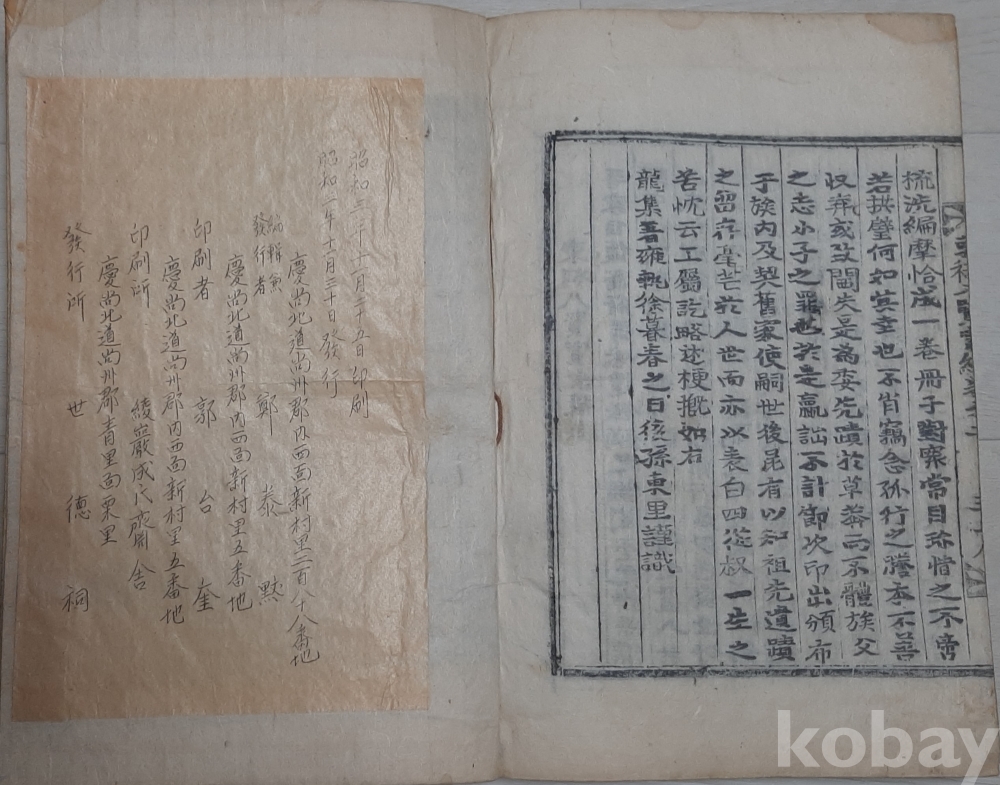 梳洗編摩恰成一卷冊子對案常目珎惜之不啻
若拱璧何如其幸也不肖竊念孫行之謄本不善
収弆或致閪失是為委先蹟於草莽而不體族父
之志小子之罪也於是贏詘不計鄧次印出頒布
于族內及契舊家使嗣世後昆有以知祖先遺蹟
之留存毫芒於人世而亦以表白四從叔一生之
苦忱云工屬訖略述梗槪如右
龍集著雍執徐暮春之日後孫東里謹識
昭和三年十一月二十五日印刷
昭和 年十一月三十日發行
慶尙北道尙州郡內西面新村里二百八十八番地
編輯兼
發行者 鄭泰默
慶尙北道尙州郡內西面新村里五番地
印刷者 郭台奎
慶尙北道尙州郡內西面新村里五番地
印刷所 綾巖成氏齋舍
慶尙北道尙州郡靑里面栗里
發行所 世德祠
kobay